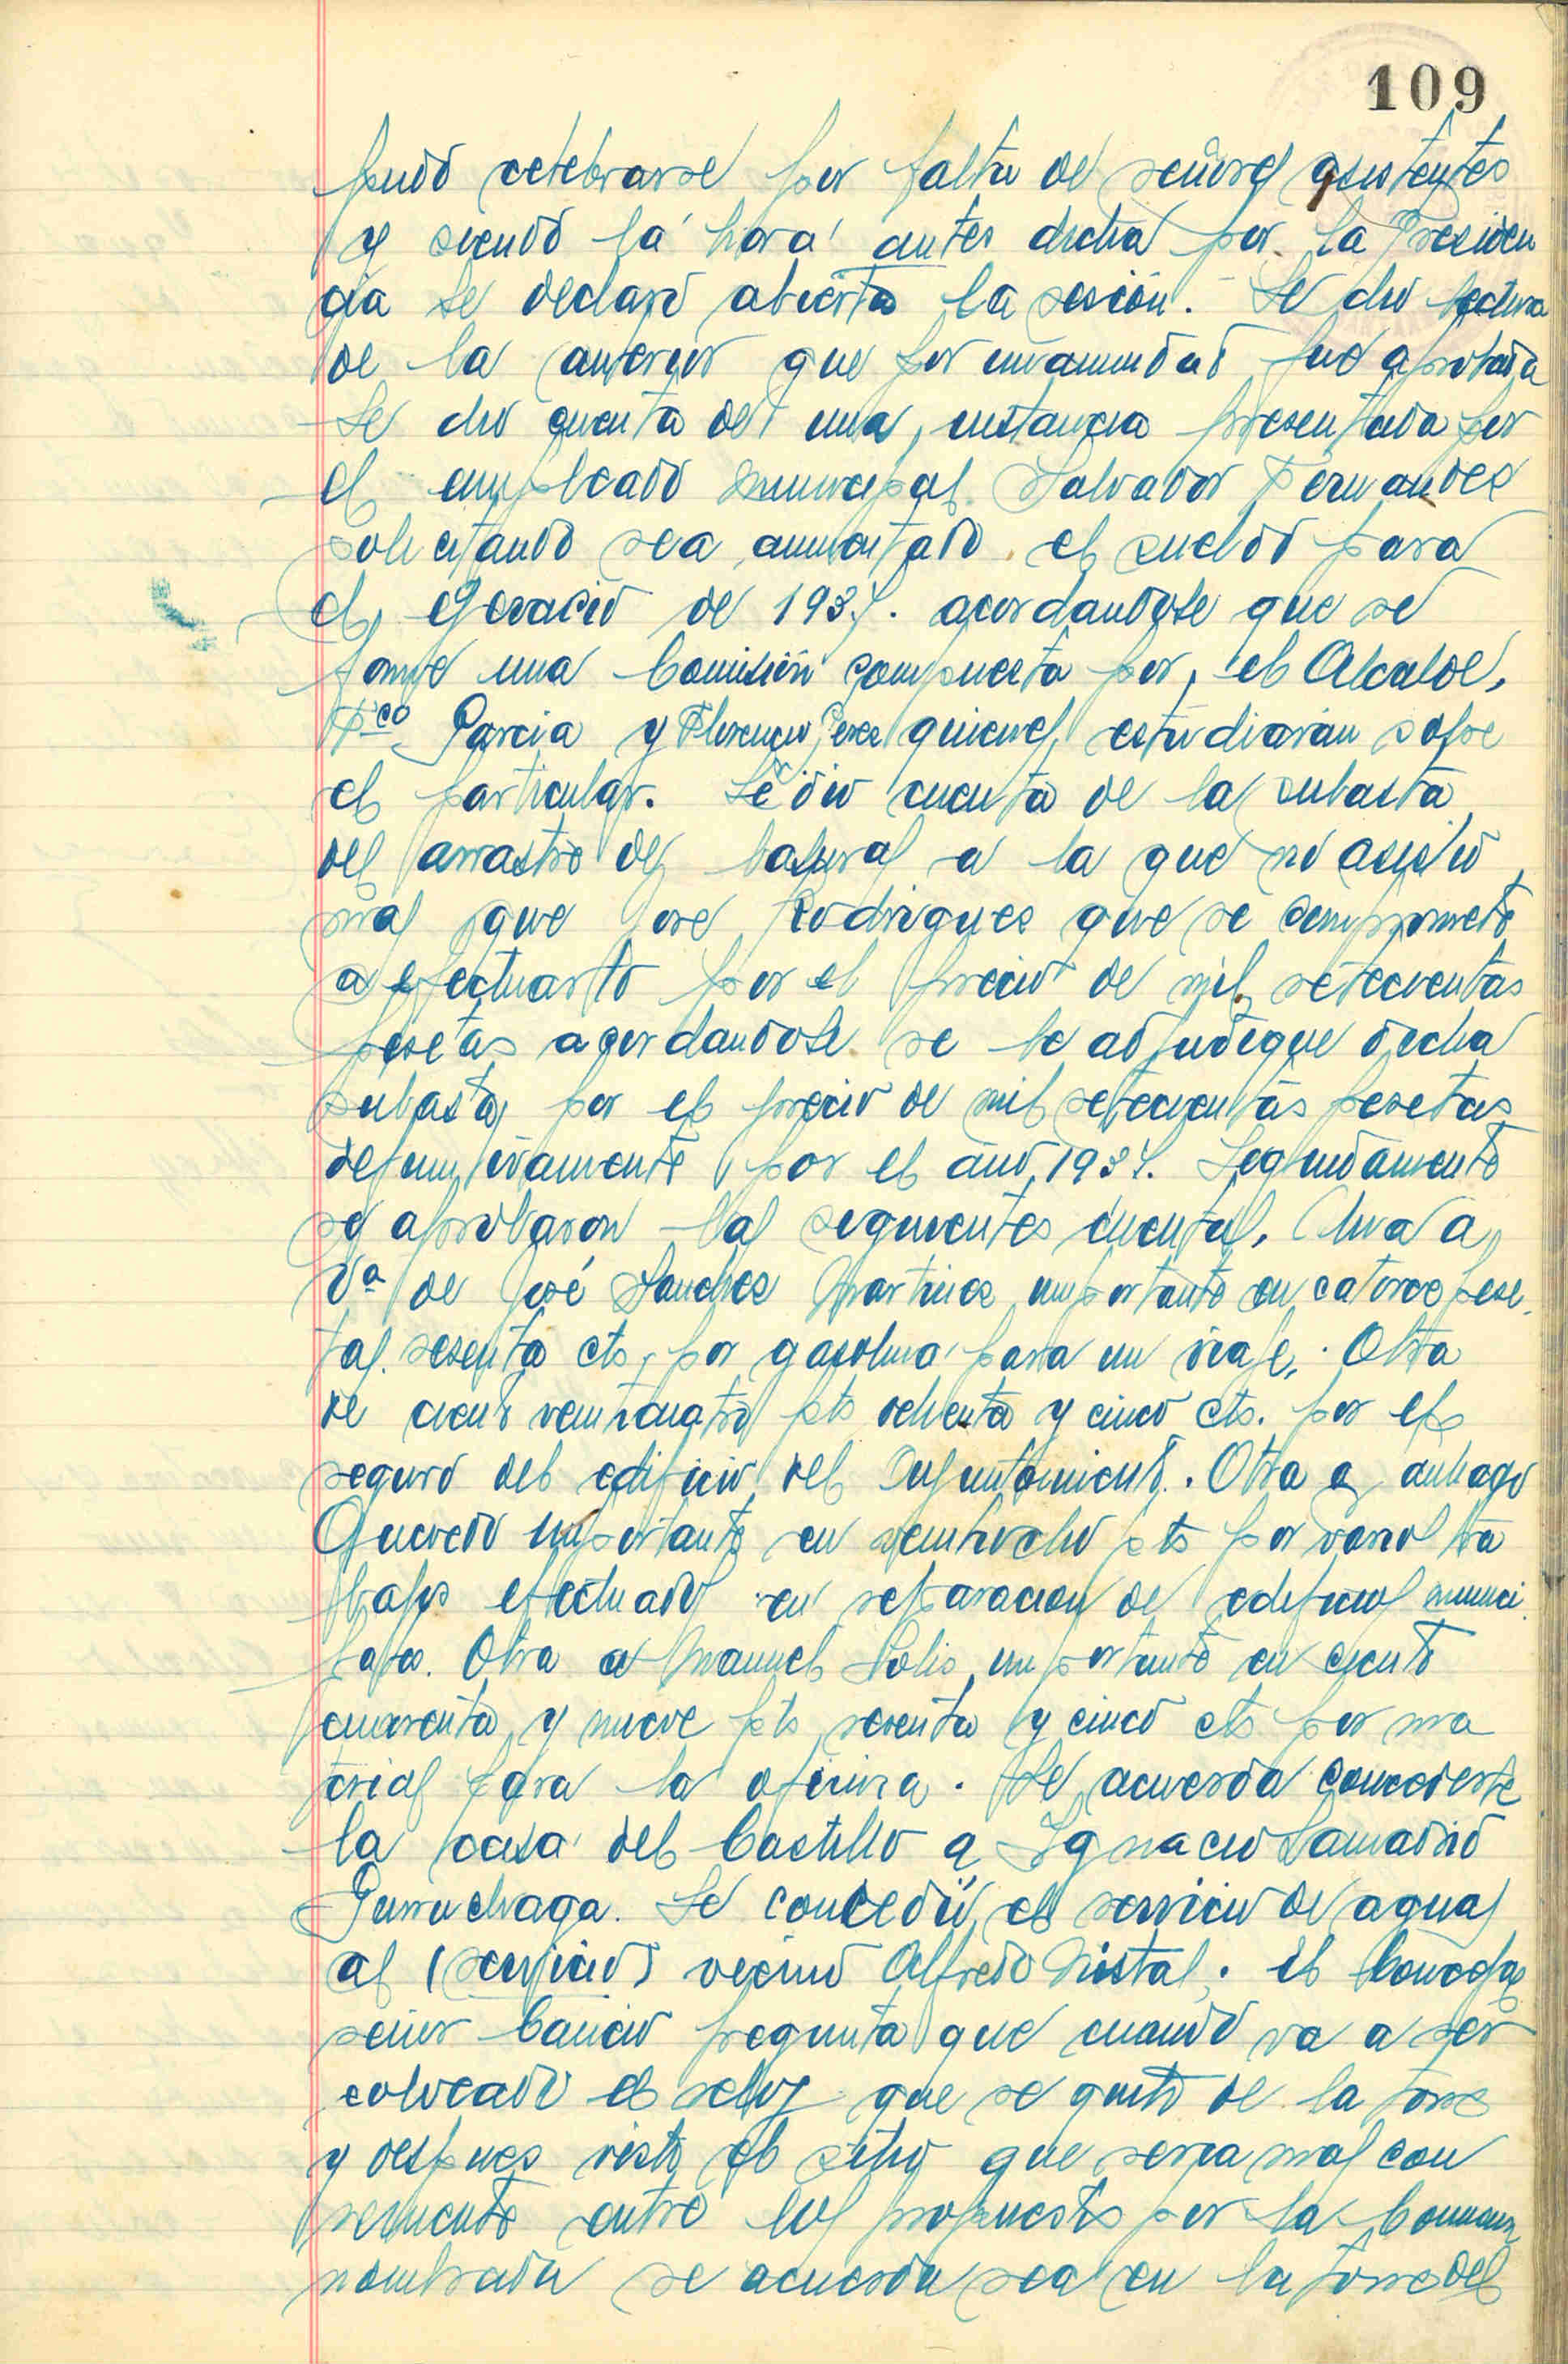 109
pudo celebrarse por falta de señores asistentes
y siendo la hora antes dicha por la Presiden
cia se declaró abierta la sesión. Se dio lectura
de la anterior que por unanimidad fue aprobada
Se dio cuenta de una instancia presentada por
el empleado municipal Salvador Fernandez
solicitando sea aumentado el sueldo para
el egercicio de 1934. acordandose que se
forme una Comisión compuesta por, el Alcalde,
Fco Garcia y Florencio Perez quienes estudiarán sobre
el particular. Se dio cuenta de la subasta
del arrastre de basuras a la que no asistio
mas que Jose Rodriguez que se compromete
a efectuarlo por el precio de mil setecientas
pesetas acordandose se le adjudique dicha
subasta por el precio de mil setecientas pesetas
definitivamente por el año 1934. Seguidamente
se aprobaron las siguientes cuentas. Una a
Vª de José Sanchez Martinez importante en catorce pese
tas sesenta cts, por gasolina para un viaje. Otra
de ciento veinticuatro pts ochenta y cinco cts. por el
seguro del edificio del Ayuntamiento. Otra a
Quevedo importante en veintiocho pts por varios tra
bajos efectuados en reparacion de edificios munici
pales. Otra a Manuel Solis, importante en ciento
cuarenta y nueve pts sesenta y cinco cts por ma
terial para la oficina. Se acuerda concederse
la casa del Castillo a Ignacio Lamadrid
Gurruchaga. Se concedió el servicio de aguas
al (servicio) vecino Alfredo Nistal. El Concejal
señor Cancio pregunta que cuando va a ser
colocado el reloj que se quitó de la torre
y despues visto el sitio que seria mas con
veniente entre los propuestos por la Comision
nombrada se acuerda sea en la torre del